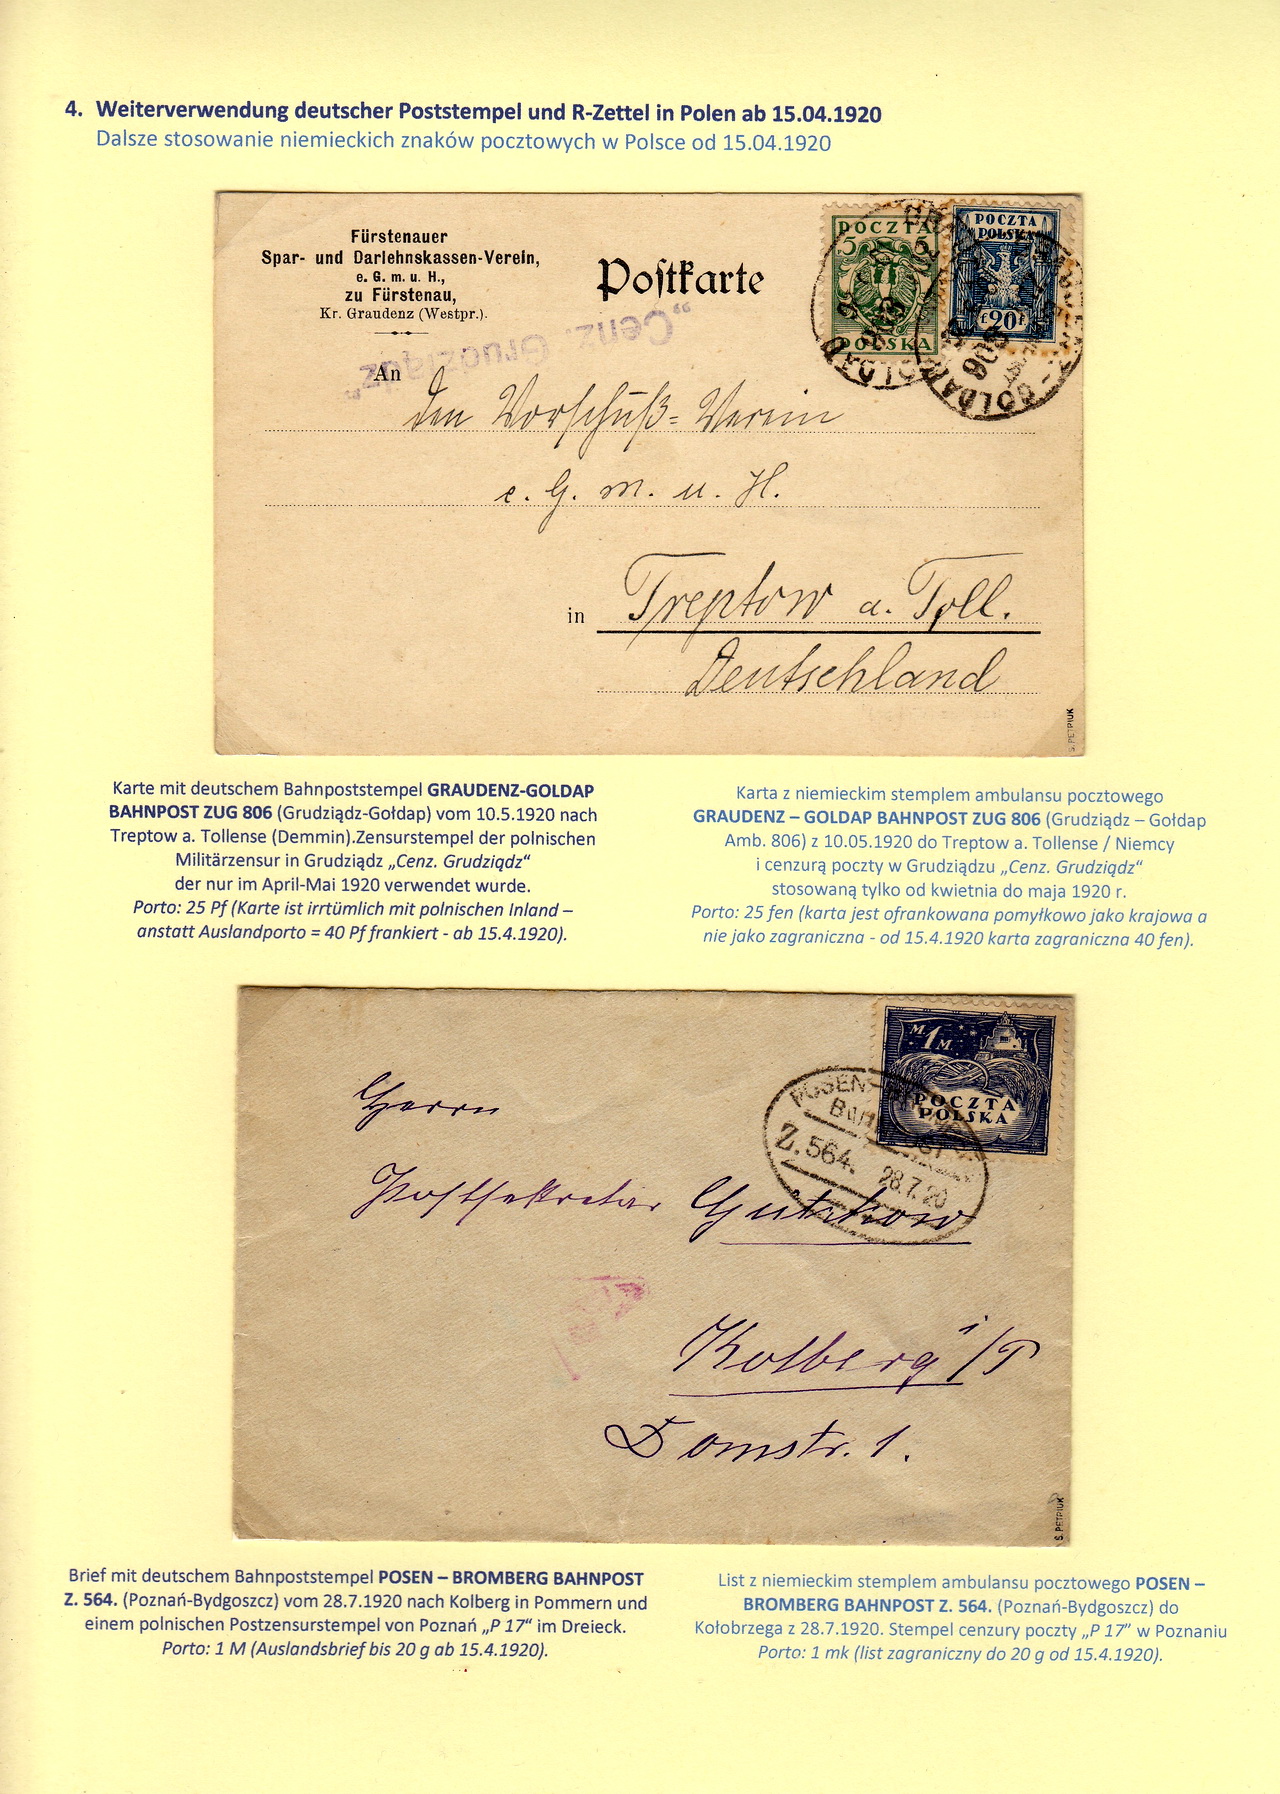 4. Weiterverwendung deutscher Poststempel und R-Zettel in Polen ab 15.04.1920
Dalsze stosowanie niemieckich znaków pocztowych w Polsce od 15.04.1920
Fürstenauer
Spar- und Darlehnskassen-Verein,
e. G. m. u. H.,
zu Fürstenau,
Kr. Graudenz (Westpr.).
Postkarte
POCZTA
5 5
POLSKA
POCZTA
POLSKA
f 20 f
GOLDAP
806
GOLDAP
806
„Cenz. Grudziądz”
An
den Vorschuß-Verein
e. G. m. u. H.
in Treptow a. Toll.
Deutschland
S. PETRIUK
Karte mit deutschem Bahnpoststempel GRAUDENZ-GOLDAP
BAHNPOST ZUG 806 (Grudziądz-Gołdap) vom 10.5.1920 nach
Treptow a. Tollense (Demmin).Zensurstempel der polnischen
Militärzensur in Grudziądz „Cenz. Grudziądz“
der nur im April-Mai 1920 verwendet wurde.
Porto: 25 Pf (Karte ist irrtümlich mit polnischen Inland –
anstatt Auslandporto = 40 Pf frankiert - ab 15.4.1920).
Karta z niemieckim stemplem ambulansu pocztowego
GRAUDENZ – GOLDAP BAHNPOST ZUG 806 (Grudziądz – Gołdap
Amb. 806) z 10.05.1920 do Treptow a. Tollense / Niemcy
i cenzurą poczty w Grudziądzu „Cenz. Grudziądz“
stosowaną tylko od kwietnia do maja 1920 r.
Porto: 25 fen (karta jest ofrankowana pomyłkowo jako krajowa a
nie jako zagraniczna - od 15.4.1920 karta zagraniczna 40 fen).
M 1 M
POCZTA
POLSKA
POSEN
Z. 564. 28.7.20
Herrn
Postsekretär Gutzkow
Kolberg i/P
Domstr. 1.
S. PETRIUK
Brief mit deutschem Bahnpoststempel POSEN – BROMBERG BAHNPOST
Z. 564. (Poznań-Bydgoszcz) vom 28.7.1920 nach Kolberg in Pommern und
einem polnischen Postzensurstempel von Poznań „P 17“ im Dreieck.
Porto: 1 M (Auslandsbrief bis 20 g ab 15.4.1920).
List z niemieckim stemplem ambulansu pocztowego POSEN –
BROMBERG BAHNPOST Z. 564. (Poznań-Bydgoszcz) do
Kołobrzega z 28.7.1920. Stempel cenzury poczty „P 17” w Poznaniu
Porto: 1 mk (list zagraniczny do 20 g od 15.4.1920).